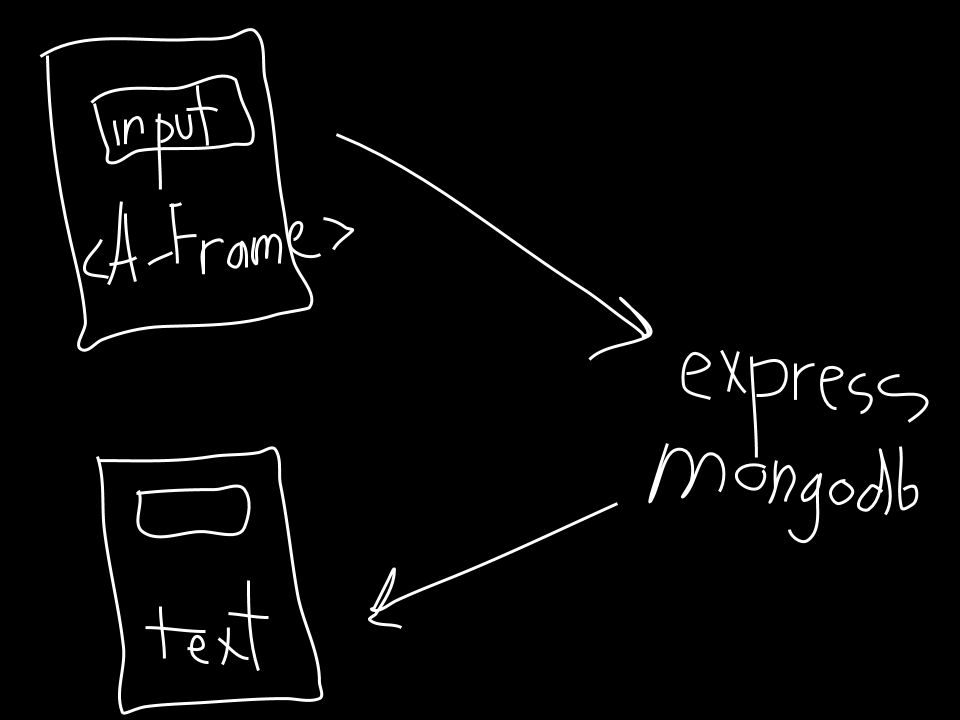 input
<A-Frame>
express
mongodb
text